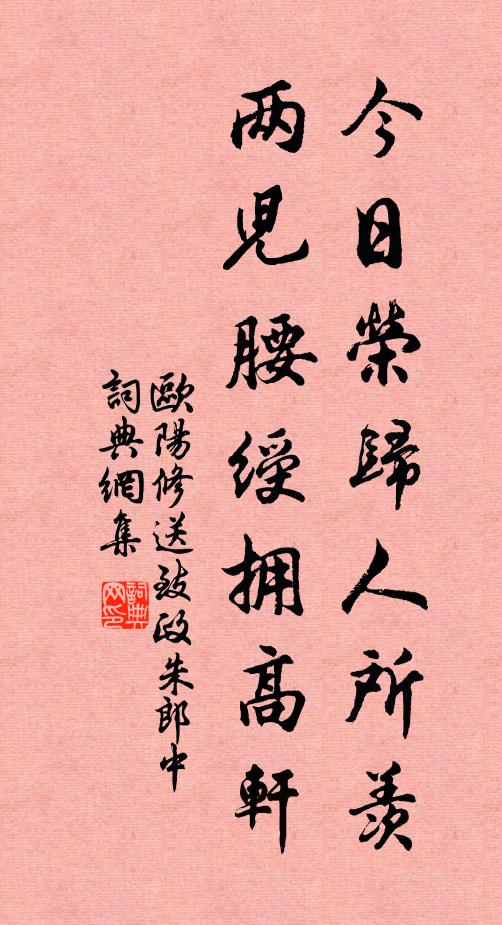 今日榮歸人所羨
两兒腰綬拥高軒
歐陽修送致政朱郎中
詞典網集
詞典
网印